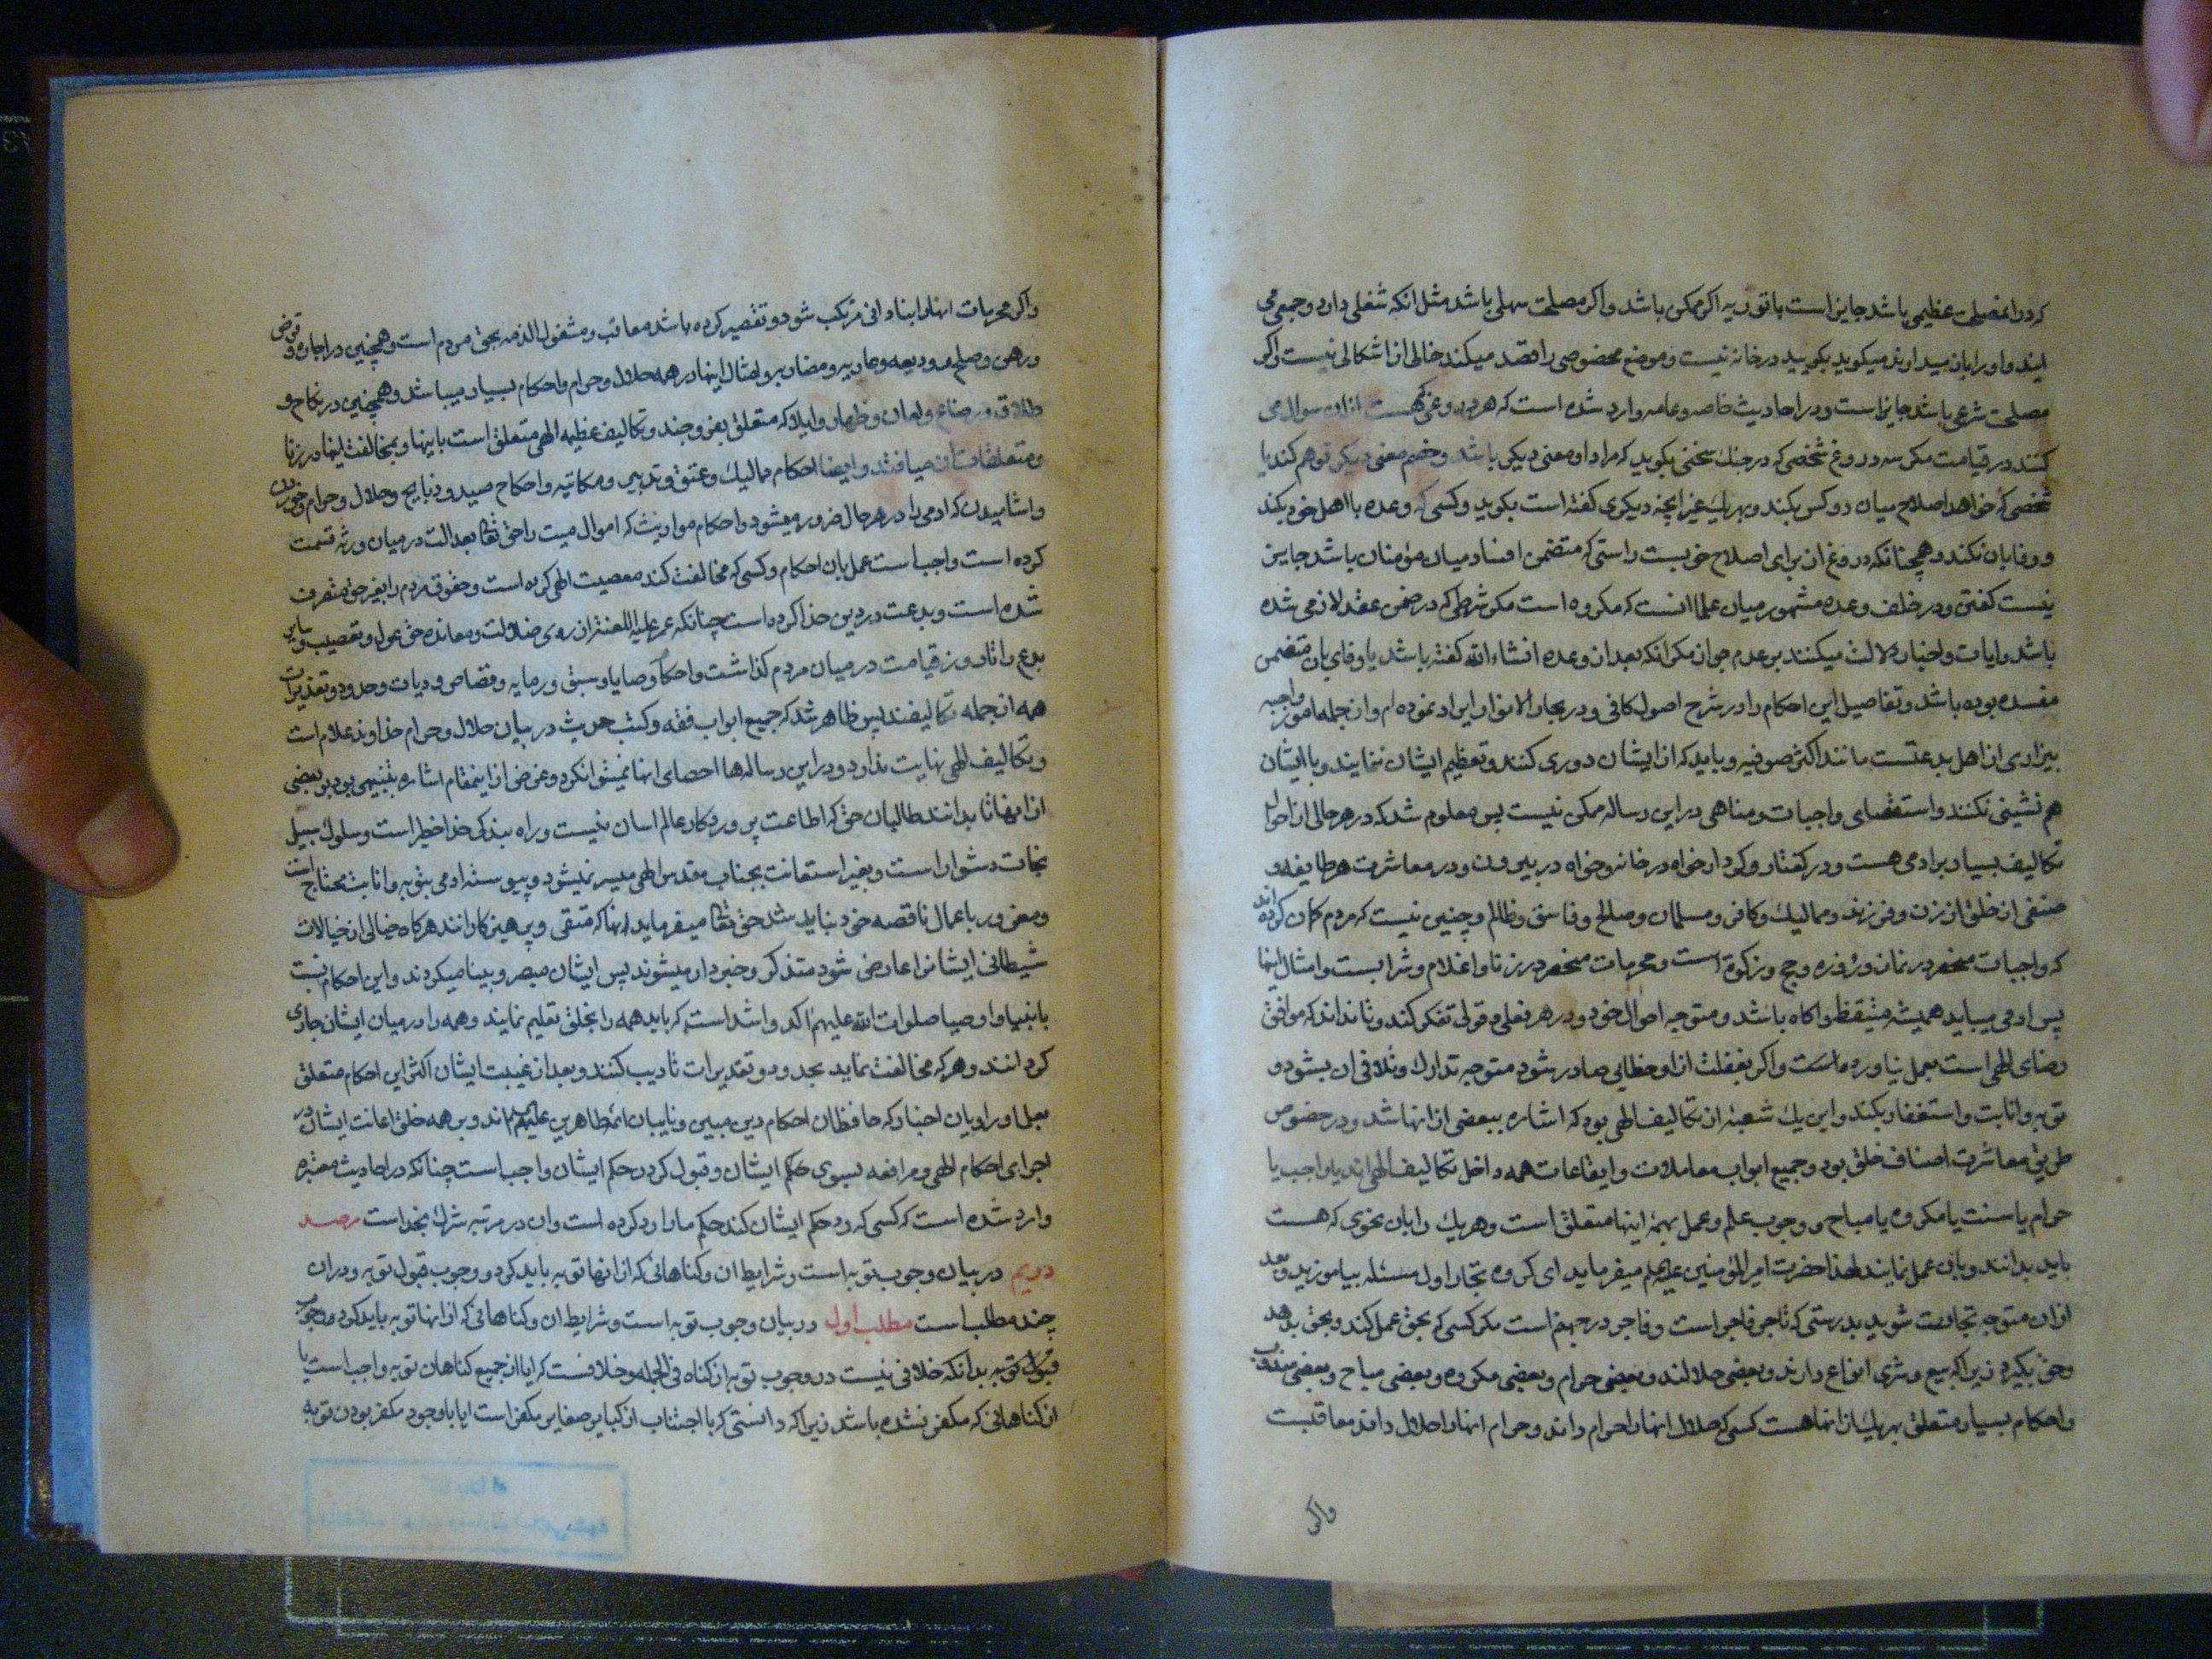 که در او مصلحت عظیمی باشد جایز است باتوریه اکر ممکن باشد واکر مصلحت سهلی باشد مثل انکه شغلی دارد وجمعی می
ایند و او را بان میدارند میکوید بکویید در خانه نیست و موضع مخصوصی را قصد میکند خالی از اشکالی نیست واکر
مصلحت شرعی باشد جایز است ودر احادیث خاصه وعامه وارد شده است که هر دروغی که هست از ان سوال می
کنند در قیامت مکر سه دروغ شخصی که در جنک سخنی بکوید که مراد او معنی دیکر باشد وخصم معنی دیکر توهم کند یا
شخصی که خواهد اصلاح میان دو کس بکند وبهریک غیر انچه دیکری کفته است بکوید وکسی که وعده با اهل خود بکند
و وفا بان نکند وهمچنانکه دروغ از برای اصلاح خوبست راستی که متضمن افساد میان مؤمنان باشد جایز
نیست کفتن ودر خلف وعده مشهور میان علما انست که مکروه است مکر شرطی که در ضمن عقد لازمی شده
باشد وایات واخبار دلالت میکنند بر عدم جواز مکر انکه بعد از وعده انشاء الله کفته باشد یا وفای بان متضمن
مفسده بوده باشد وتفاصیل این احکام را در شرح اصول کافی ودر بحار الانوار ایراد نموده ام واز جمله امور واجبه
بیزاری از اهل بدعتست مانند اکثر صوفیه وباید که از ایشان دوری کنند وتعظیم ایشان ننمایند وبا ایشان
هم نشینی نکنند واستقصای واجبات ومناهی در این رساله ممکن نیست پس معلوم شد که در هر حالی از احوال
تکالیف بسیار بر ادمی هست ودر کفتار وکردار خواه در خانه وخواه در بیرون ودر معاشرت هر طایفه و
صنفی از خلق از زن وفرزند وممالیک وکافر ومسلمان وصالح وفاسق وظالم وچنین نیست که مردم کمان کرده اند
که واجبات منحصر در نماز و روزه وحج وزکوة است ومحرمات منحصر در زنا واغلام وشرابست وامثال اینها
پس ادمی میباید همیشه متیقظ واکاه باشد ومتوجه احوال خود ودر هر فعلی وقولی تفکر کند وتا نداند که موافق
رضای الهی است بعمل نیاورد و اکر بغفلت از او خطایی صادر شود متوجه تدارک وتلافی ان بشود و
توبه وانابت واستغفار بکند واین یک شعبهٔ از تکالیف الهی بود که اشاره ببعضی از انها شد ودر خصوص
طریق معاشرت اصناف خلق بود وجمیع ابواب معاملات وایقاعات همه داخل تکالیف الهی اند یا واجب یا
حرام یا سنت یا مکروه یا مباح و وجوب علم وعمل بهمهٔ اینها متعلق است وهر یک را بان نحوی که هست
باید بدانند وبان عمل نمایند لهذا حضرت امیر المؤمنین علیه السلم میفرماید ای کروه تجار اول مسئله بیاموزید وبعد
از ان متوجه تجارت شوید بدرستی که تاجر فاجر است وفاجر در جهنم است مکر کسی که بحق عمل کند وبحق بدهد
وحق بکیرد زیرا که بیع وشری انواع دارند وبعضی حلالند وبعضی حرام وبعضی مکروه وبعضی مباح وبعضی مندوب
واحکام بسیار متعلق بهر یک از انها هست کسی که حلال انها را حرام داند وحرام انها را حلال داند معاقبت
واکر
واکر محرمات انها را بنادانی مرتکب شود وتقصیر کرده باشد معاتب ومشغول الذمه بحق مردم است وهمچنین در اجاره وقرض
ورهن وصلح و ودیعه وعاریه ومضاربه وامثال اینها در همه حلال وحرام واحکام بسیار میباشد وهمچنین در نکاح و
طلاق ورضاع ولعان وظهار وایلا که متعلق بفروجند وتکالیف عظیمه الهی متعلق است باینها وبمخالفت اینها در زنا
ومتعلقات ان میافتند وایضا احکام ممالیک وعتق وتدبیر ومکاتبه واحکام صید وذبایح وحلال وحرام وخوردن
واشامیدن که ادمی را در هر حال ضرور میشود واحکام مواریث که اموال میت را حق تعالی بعدالت در میان ورثه قسمت
کرده است واجب است عمل بان احکام وکسی که مخالفت کند معصیت الهی کرده است وحقوق مردم را بغیر حق متصرف
شده است وبدعت در دین خدا کرده است چنانکه عمر علیه اللعنة از روی ضلالت ومعانده حق عول وتعصیب وسایر
بدع را تا روز قیامت در میان مردم کذاشت واحکام وصایا وسبق ورمایه وقصاص ودیات وحدود وتعزیرات
همه از جمله تکالیفند پس ظاهر شد که جمیع ابواب فقه وکتب حدیث در بیان حلال وحرام خداوند علام است
وتکالیف الهی نهایت ندارد ودر این رساله ها احصای انها نمیتوان کرد وغرض از اینمقام اشاره تنبیهی بود بر بعضی
از انها تا بدانند طالبان حق که اطاعت پروردکار عالم اسان نیست وراه بندکی خدا خطیر است وسلوک سبیل
نجات دشوار است وبغیر استعانت بجناب مقدس الهی میسر نمیشود وپیوسته ادمی بتوبه وانابت محتاج است
ومغرور باعمال ناقصه خود نباید شد حق تعالی میفرماید انها که متقی وپرهیزکارانند هرکاه خیالی از خیالات
شیطانی ایشانرا عارض شود متذکر وخبردار میشوند پس ایشان مبصر وبینا میکردند واین احکام نسبت
بانبیا واوصیا صلوات الله علیهم اکد واشد است که باید همه را بخلق تعلیم نمایند وهمه را در میان ایشان جاری
کردانند وهر که مخالفت نماید بحدود وتعزیرات تادیب کنند وبعد از غیبت ایشان اکثر این احکام متعلق
بعلما وراویان اخبار که حافظان احکام دین مبین ونایبان ائمه طاهرین علیهم السلم اند وبر همه خلق اعانت ایشان در
اجرای احکام الهی ومرافعه بسوی حکم ایشان وقبول کردن حکم ایشان واجب است چنانکه در احادیث معتبره
وارد شده است که کسی که رد حکم ایشان کند حکم ما را رد کرده است وان در مرتبه شرک بخداست مرصد
دویم در بیان وجوب توبه است وشرایط ان وکناهانی که از انها توبه باید کرد و وجوب قبول توبه ودر ان
چند مطلب است مطلب اول در بیان وجوب توبه است وشرایط ان وکناهانی که از انها توبه باید کرد و وجوب
قبول توبه بدانکه خلافی نیست در وجوب توبه از کناه فی الجمله وخلافست که ایا از جمیع کناهان توبه واجب است یا
از کناهانی که مکفر نشده باشد زیرا که دانستی که با اجتناب از کبایر صغایر مکفر است ایا با وجود مکفر بودن توبه